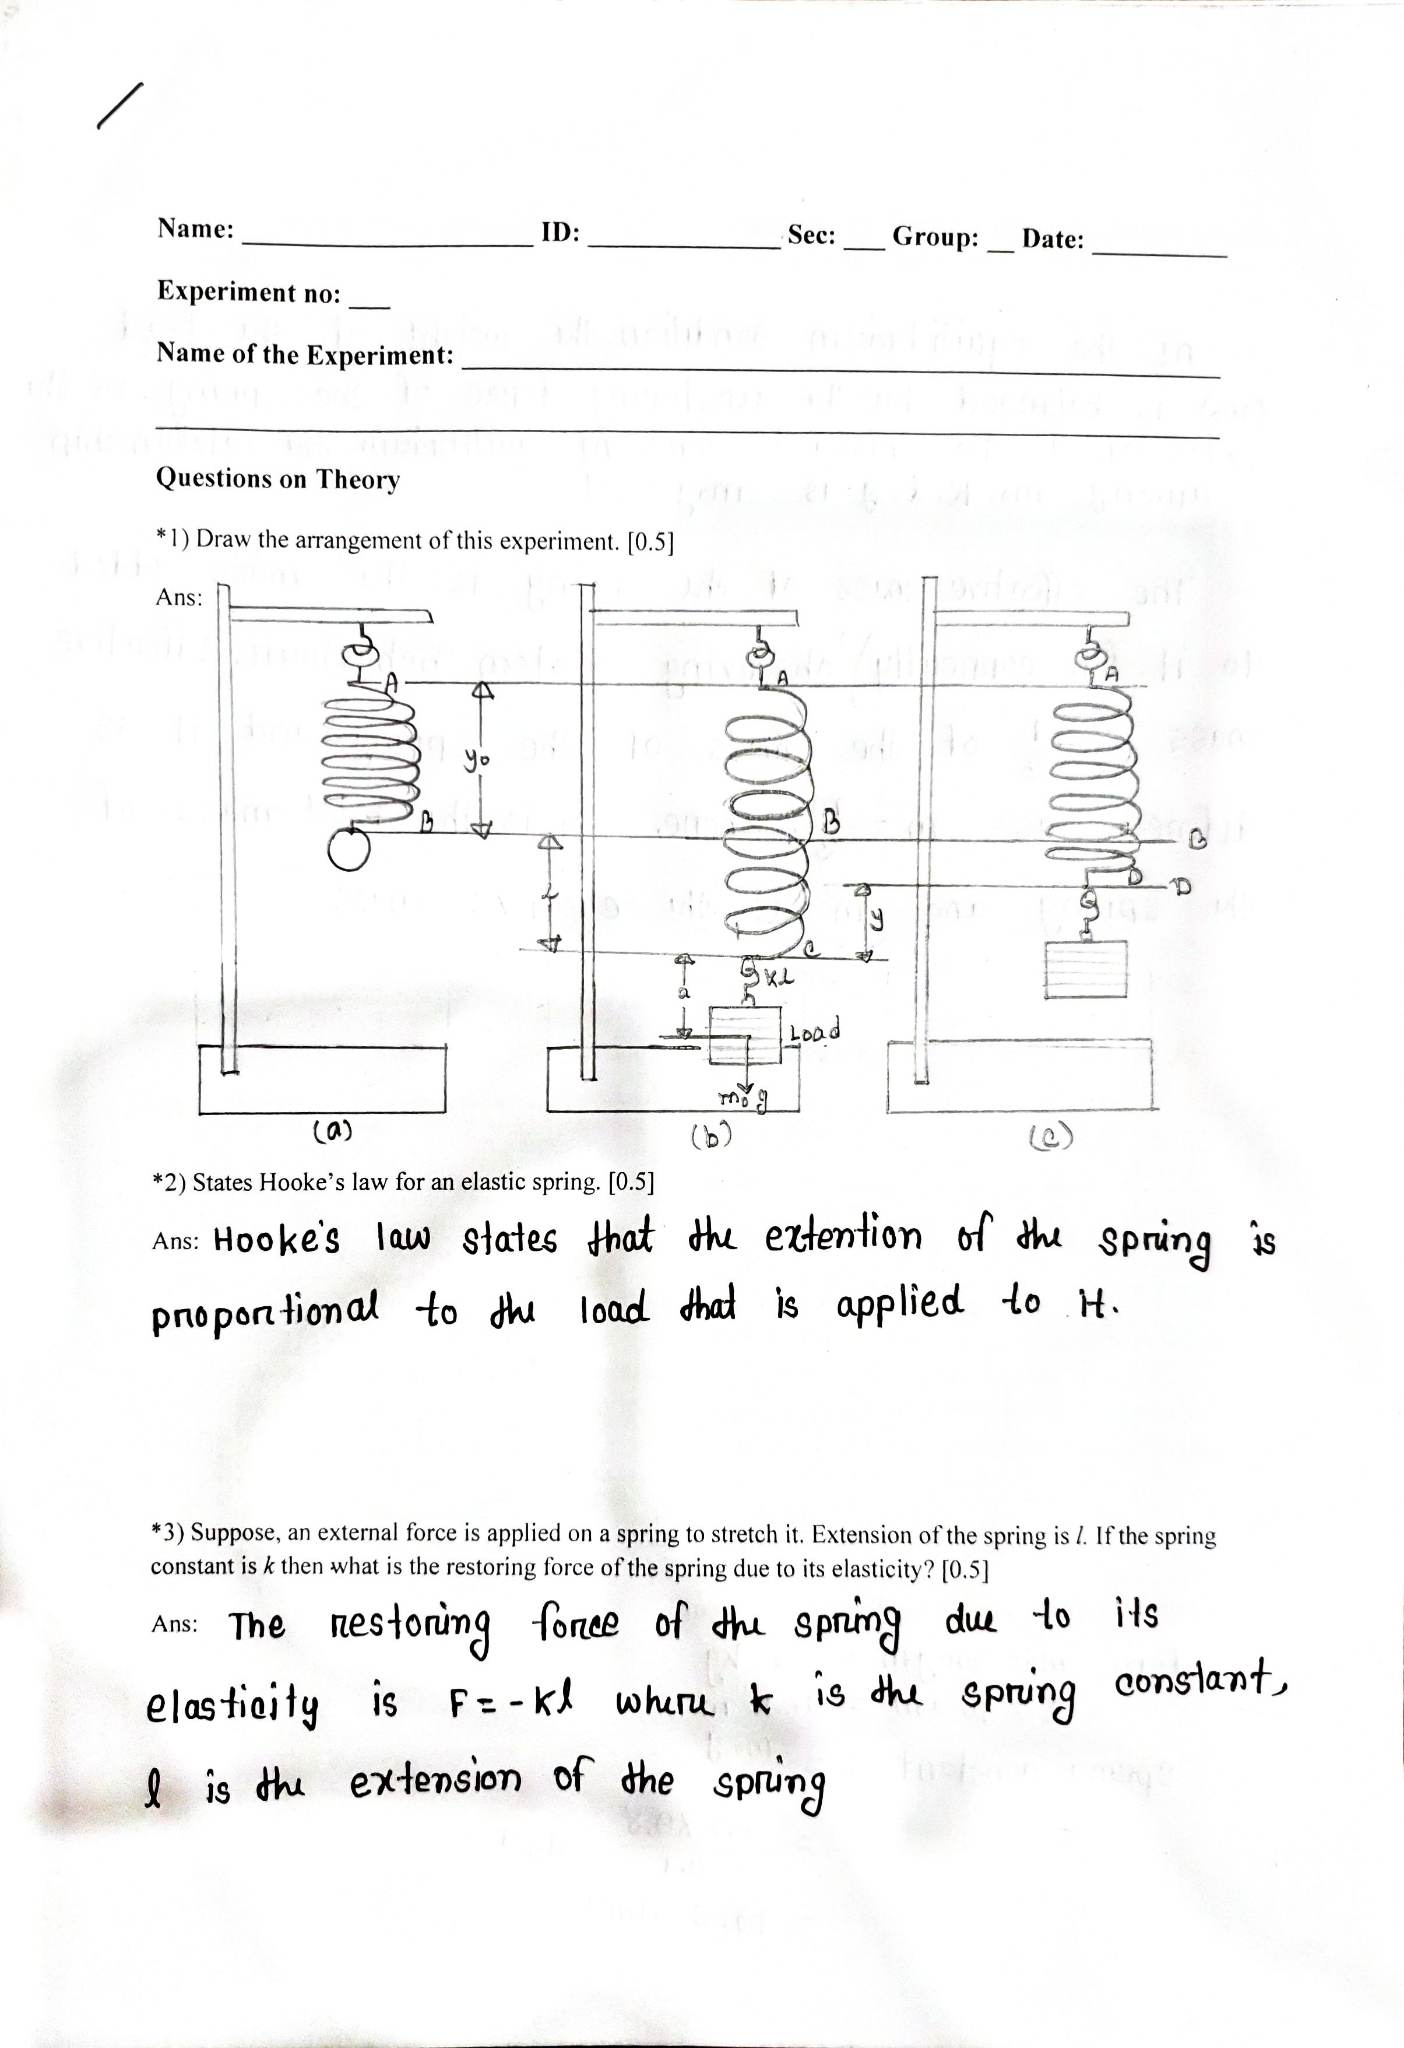 Name: ____________ ID: ____________ Sec: ___ Group: __ Date: ________
Experiment no: ___
Name of the Experiment: ____________
Questions on Theory
*1) Draw the arrangement of this experiment. [0.5]
Ans:
A
A
A
y₀
B
B
B
l
D
D
y
C
kl
a
Load
m₀g
(a)
(b)
(c)
*2) States Hooke's law for an elastic spring. [0.5]
Ans: Hooke's law states that the extention of the spring is
proportional to the load that is applied to it.
*3) Suppose, an external force is applied on a spring to stretch it. Extension of the spring is l. If the spring
constant is k then what is the restoring force of the spring due to its elasticity? [0.5]
Ans: The restoring force of the spring due to its
elasticity is F = - kl where k is the spring constant,
l is the extension of the spring